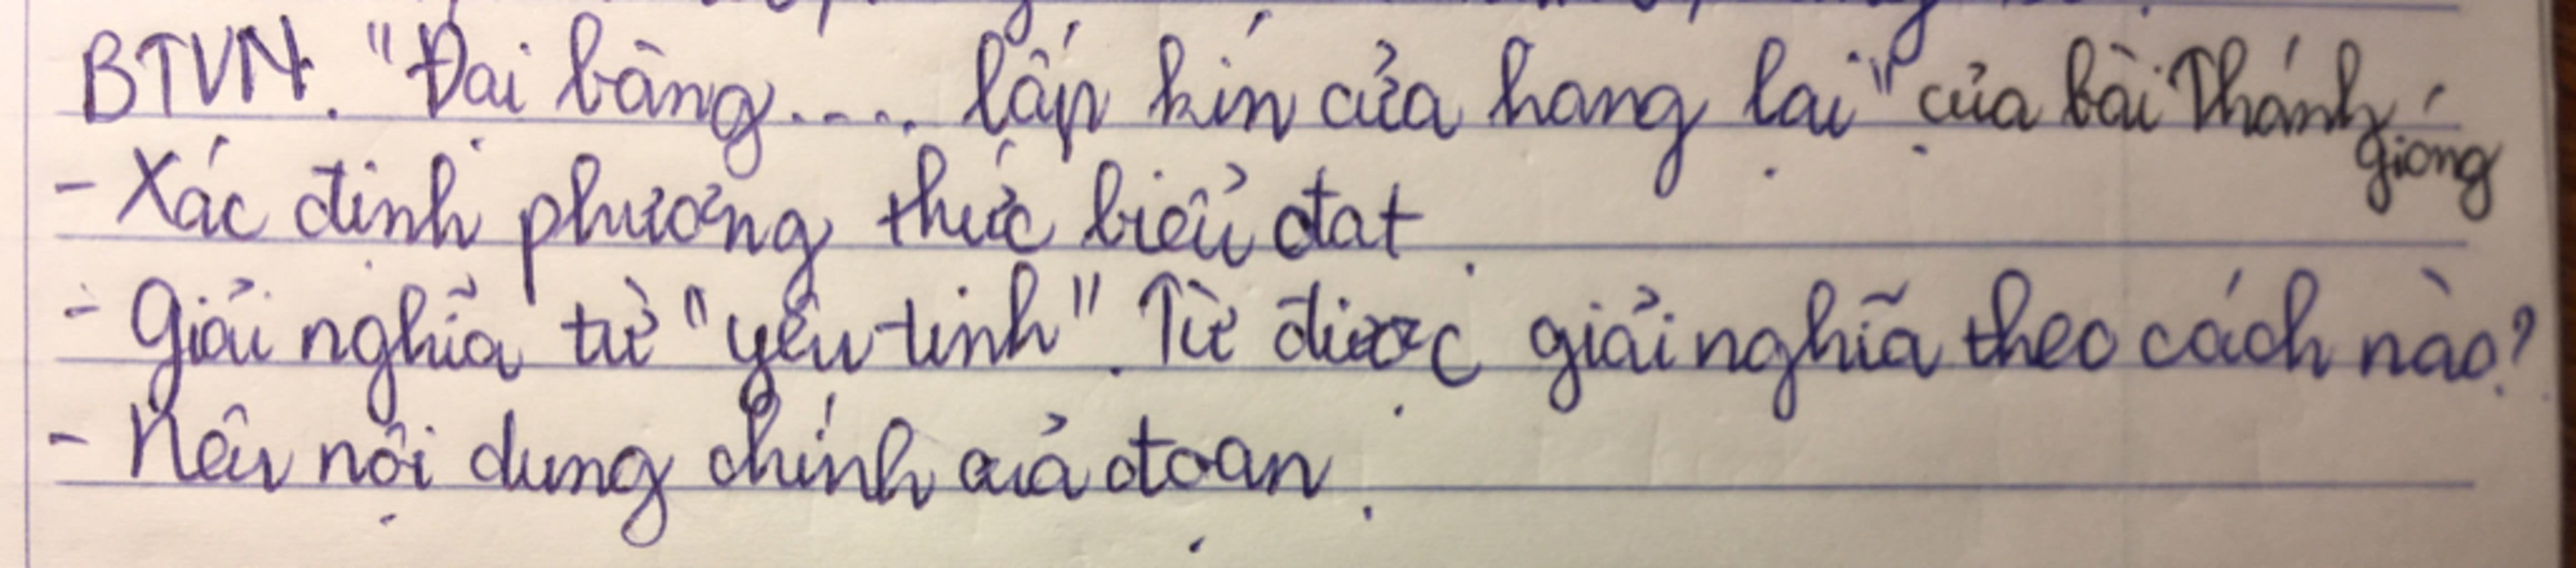 BTVN. "Đại bàng.... lấp kín cửa hang lại" của bài Thánh
Gióng
- Xác định phương thức biểu đạt.
- Giải nghĩa từ "yêu tinh". Từ được giải nghĩa theo cách nào?
- Nêu nội dung chính của đoạn.